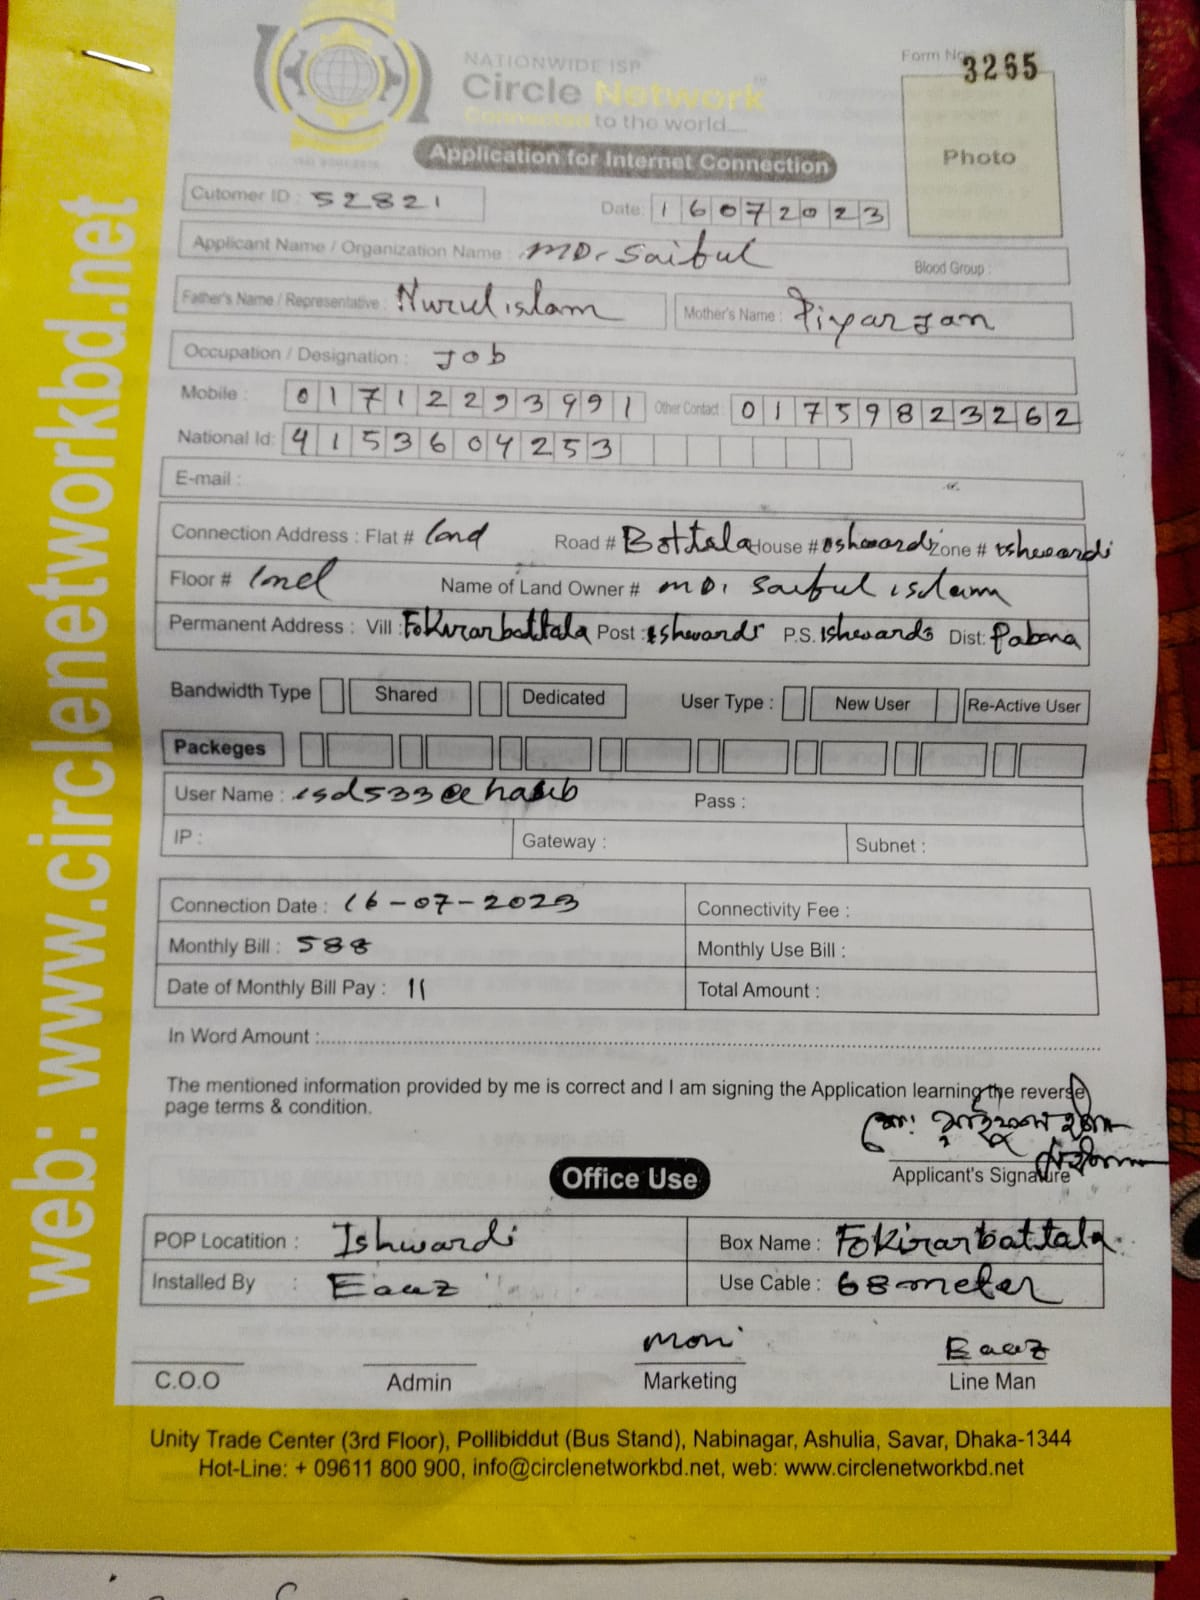 web: www.circlenetworkbd.net
NATIONWIDE ISP
Circle Network
Connected to the world....
Form No. 3265
Photo
Application for Internet Connection
Cutomer ID : 52821
Date: 16072023
Applicant Name / Organization Name : MD. Saiful
Blood Group :
Father's Name / Representative : Nurul islam
Mother's Name : Piyarjan
Occupation / Designation : Job
Mobile : 01712293991 Other Contact : 01759823262
National Id: 4153604253
E-mail :
Connection Address : Flat # Road # Bottola House # Zone #
Floor # Name of Land Owner # MD. Saiful islam
Permanent Address : Vill : Fokirarbattala Post : P.S. Dist: Pabna
Bandwidth Type Shared Dedicated User Type : New User Re-Active User
Packeges
User Name : Pass :
IP : Gateway : Subnet :
Connection Date : 16-07-2023 Connectivity Fee :
Monthly Bill : 588 Monthly Use Bill :
Date of Monthly Bill Pay : 11 Total Amount :
In Word Amount :
The mentioned information provided by me is correct and I am signing the Application learning the reverse
page terms & condition.
মো: সাইফুল
Applicant's Signature
Office Use
POP Locatition : Ishwardi Box Name : Fokirarbattala
Installed By : Use Cable : 68 meter
Moni
C.O.O Admin Marketing Line Man
Unity Trade Center (3rd Floor), Pollibiddut (Bus Stand), Nabinagar, Ashulia, Savar, Dhaka-1344
Hot-Line: + 09611 800 900, info@circlenetworkbd.net, web: www.circlenetworkbd.net